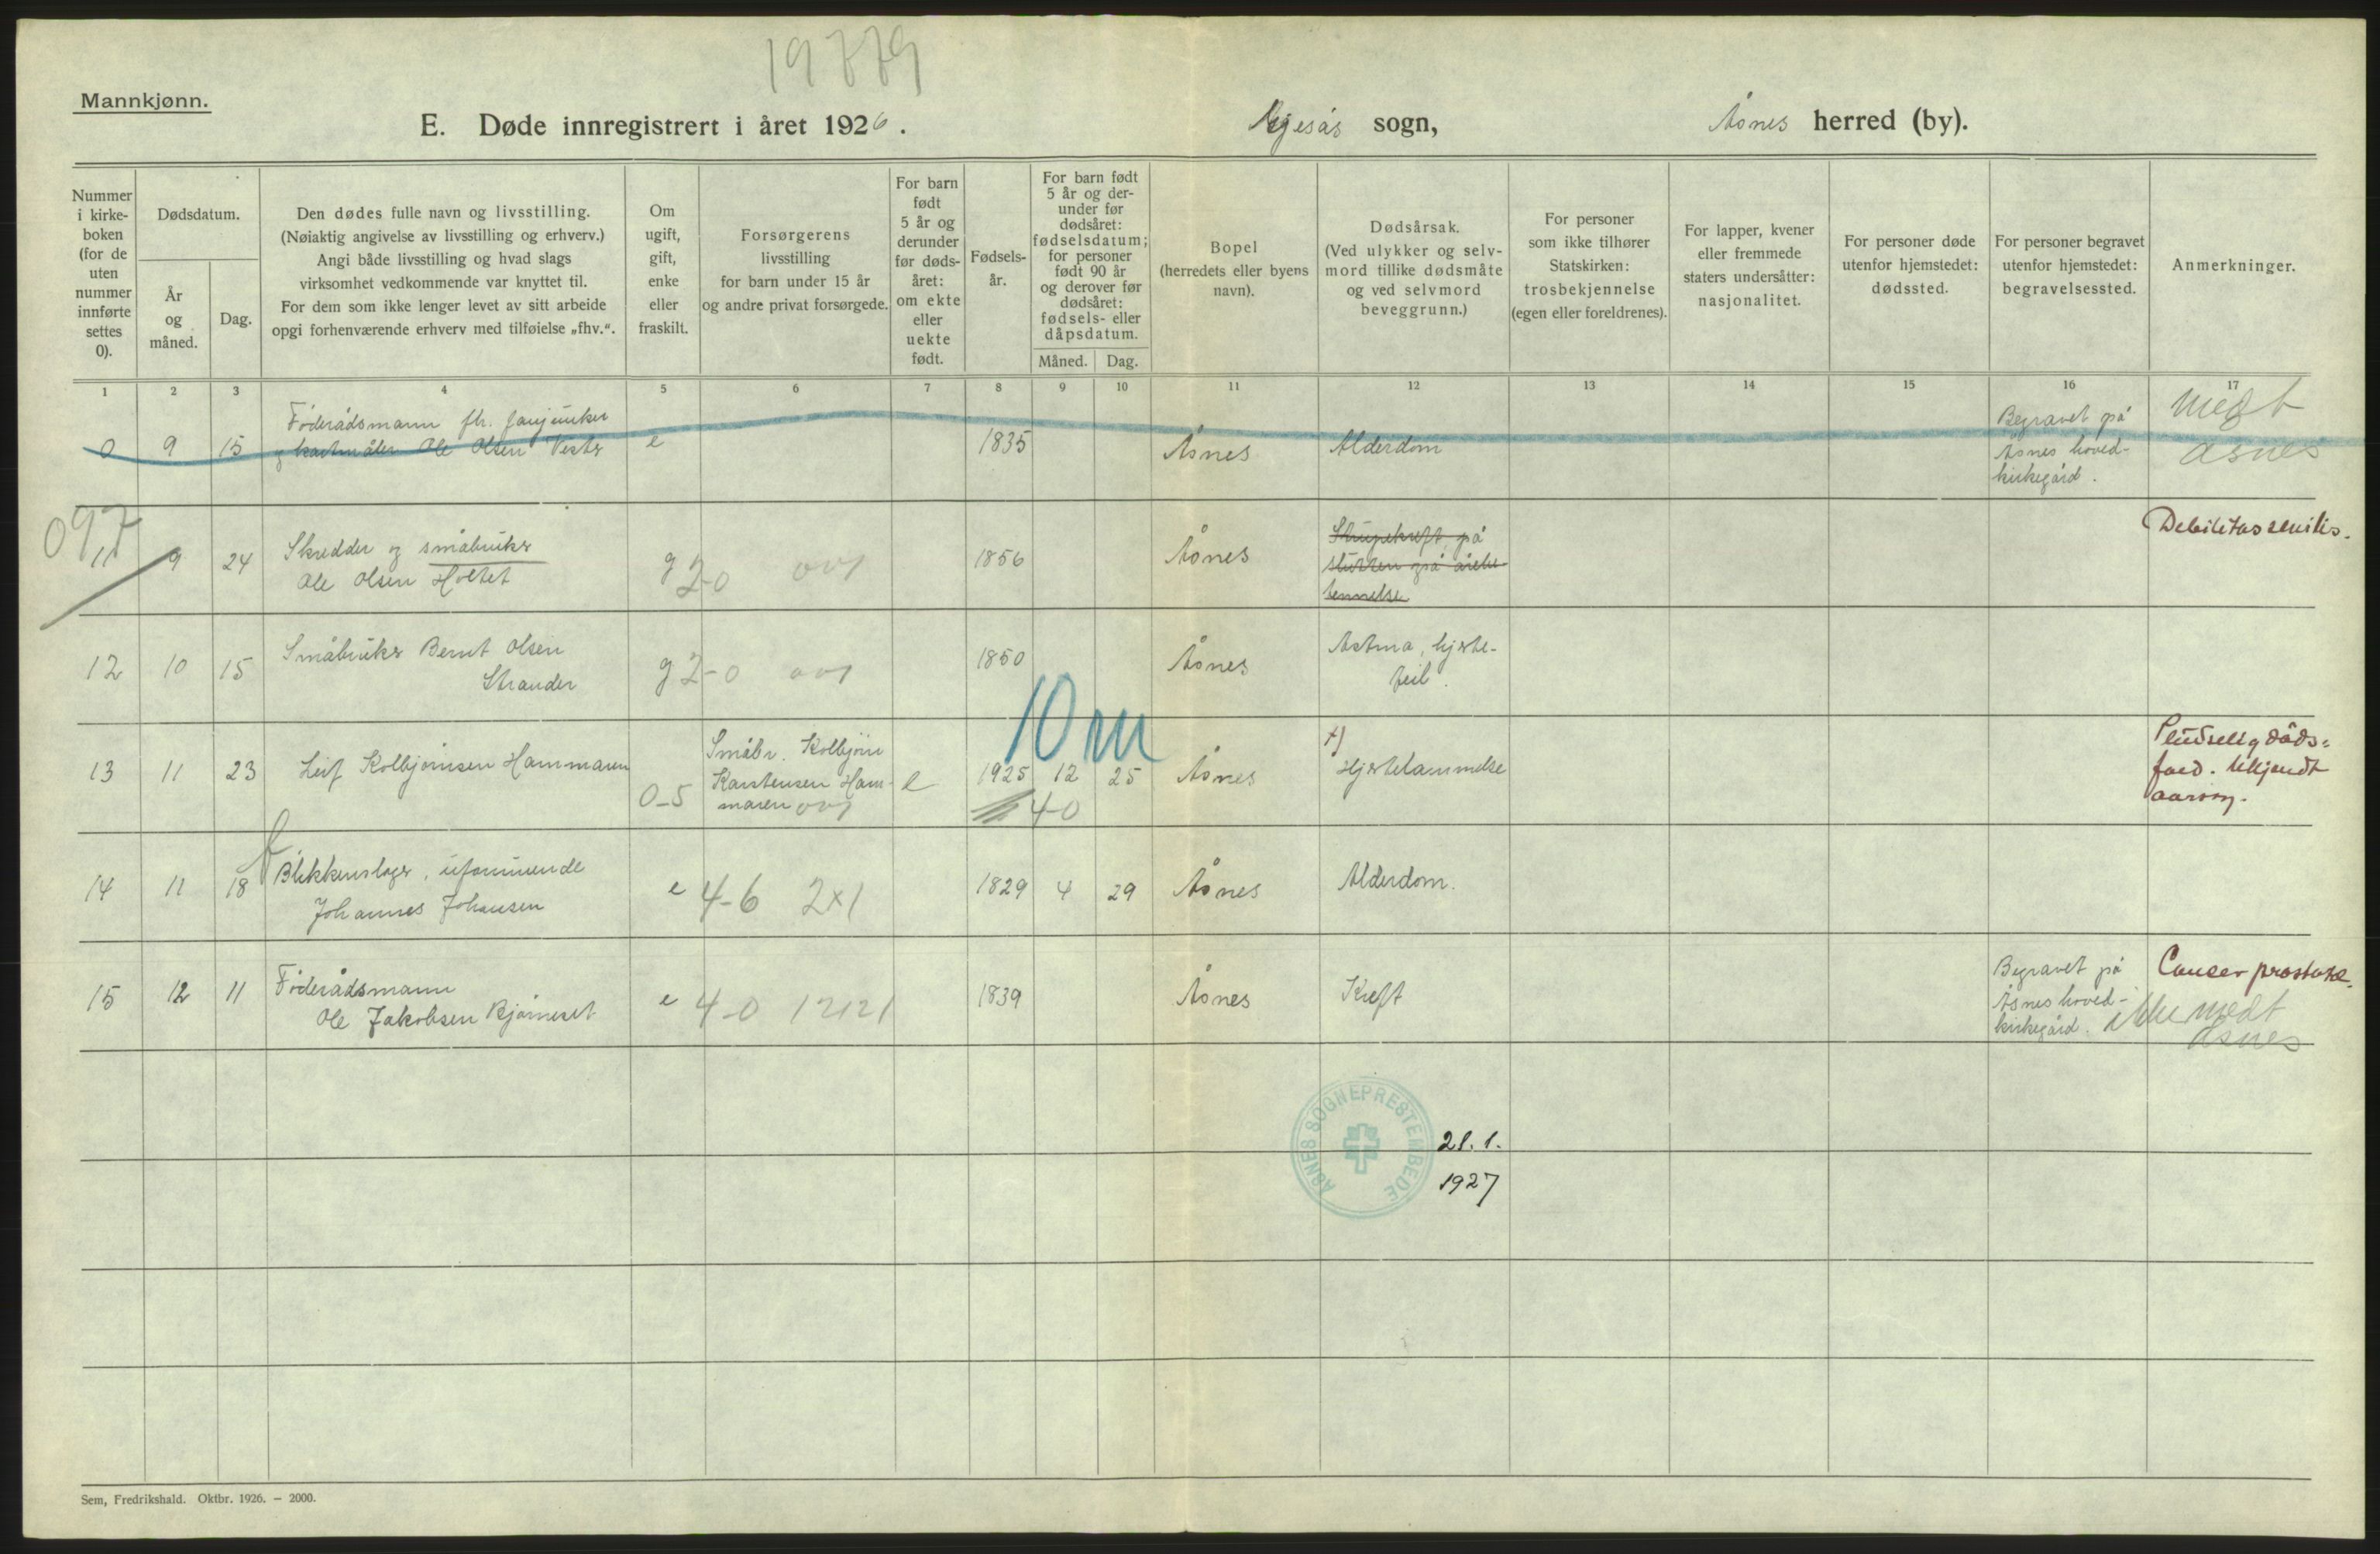 19779
Mannkjønn.
E. Døde innregistrert i året 1926.
sogn,
Åsnes herred (by).
Nummer
i kirke-
boken
(for de
uten
nummer
innførte
settes
0).
Dødsdatum.
År
og
måned.
Dag.
Den dødes fulle navn og livsstilling.
(Nøiaktig angivelse av livsstilling og erhverv.)
Angi både livsstilling og hvad slags
virksomhet vedkommende var knyttet til.
For dem som ikke lenger levet av sitt arbeide
opgi forhenværende erhverv med tilføielse „fhv.“.
Om
ugift,
gift,
enke
eller
fraskilt.
Forsørgerens
livsstilling
for barn under 15 år
og andre privat forsørgede.
For barn
født
5 år og
derunder
før døds-
året:
om ekte
eller
uekte
født.
Fødsels-
år.
For barn født
5 år og der-
under før
dødsåret:
fødselsdatum;
for personer
født 90 år
og derover før
dødsåret:
fødsels- eller
dåpsdatum.
Måned. Dag.
Bopel
(herredets eller byens
navn).
Dødsårsak.
(Ved ulykker og selv-
mord tillike dødsmåte
og ved selvmord
beveggrunn.)
For personer
som ikke tilhører
Statskirken:
trosbekjennelse
(egen eller foreldrenes).
For lapper, kvener
eller fremmede
staters undersåtter:
nasjonalitet.
For personer døde
utenfor hjemstedet:
dødssted.
For personer begravet
utenfor hjemstedet:
begravelsessted.
Anmerkninger.
1 2 3 4 5 6 7 8 9 10 11 12 13 14 15 16 17
0 9 15
Føderådsmann fhv.
Ole Olsen
e
1835
Åsnes
Alderdom
Begravet på
Åsnes hoved-
kirkegård.
medt
Åsnes
097
11 9 24
Skredder og småbruker
Ole Olsen Holtet
g 2-0
1856
Åsnes
Strupekreft, på
slutten også årebe-
tennelse
Debilitas senilis.
12 10 15
Småbruker Bernt Olsen
Strander
g 2-0
1850
Åsnes
Astma, hjerte-
feil.
10 m
13 11 23
Leif Kolbjørnsen Hammaren
0-5
Småbr. Kolbjørn
Karstensen Ham-
maren
e
1925 12 25
40
Åsnes
+)
Hjertelammelse
Pludselig døds-
fald. Ukjendt
aarsag.
14 11 18
Blikkenslager, uformuende
Johannes Johansen
e 4-6 2x1
1829 4 29
Åsnes
Alderdom.
15 12 11
Føderådsmann
Ole Jakobsen Bjørneset
e 4-0 12121
1839
Åsnes
Kreft
Begravet på
Åsnes hoved-
kirkegård.
Cancer prostatæ.
ikke medt
Åsnes
ÅSNES SOGNEPRESTEMBEDE
21. 1.
1927
Sem, Fredrikshald. Oktbr. 1926. – 2000.